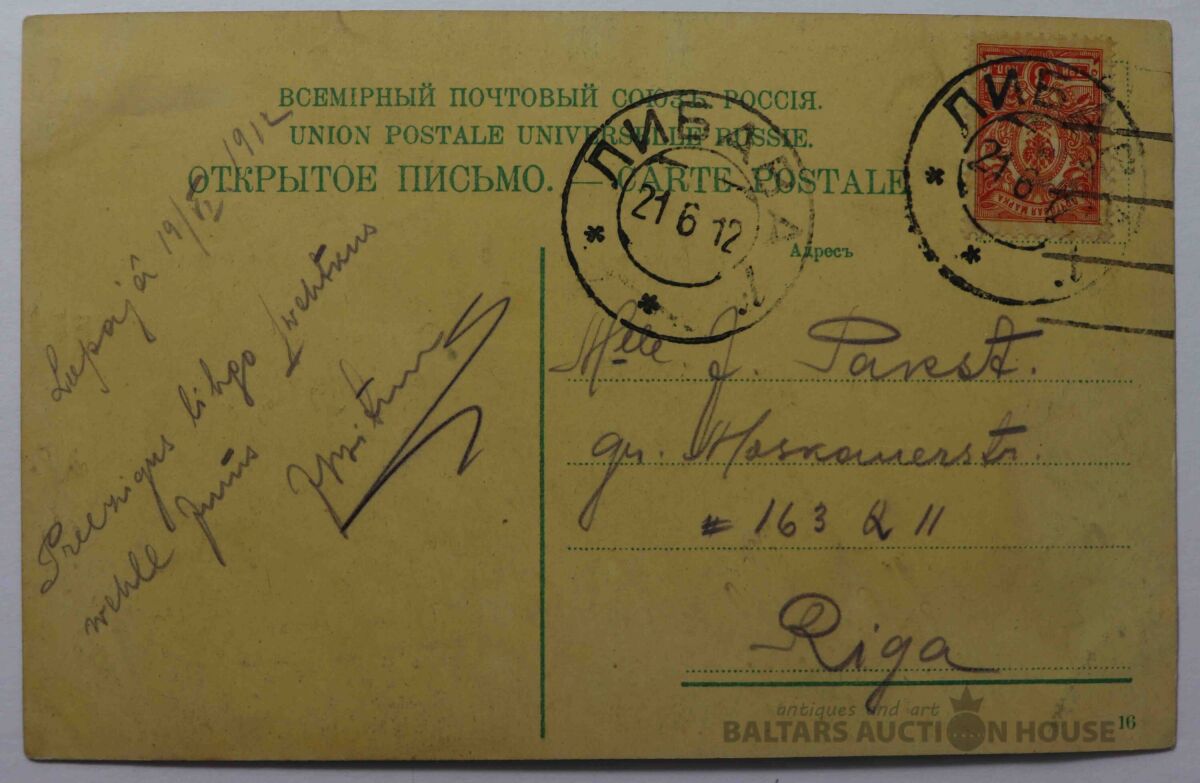 ВСЕМІРНЫЙ ПОЧТОВЫЙ СОЮЗЪ РОССІЯ.
UNION POSTALE UNIVERSELLE RUSSIE.
ОТКРЫТОЕ ПИСЬМО. — CARTE POSTALE
Адресъ
ЛИБАВА
21 6 12
ЛИБАВА
21 6
Leepajâ 19/VI 1912
Preezigus lihgo swehtkus
wehle Jums
Mlle J. Pakst.
gr. Moskauerstr.
163 Q 11
Riga
16
antiques and art
BALTARS AUCTION HOUSE